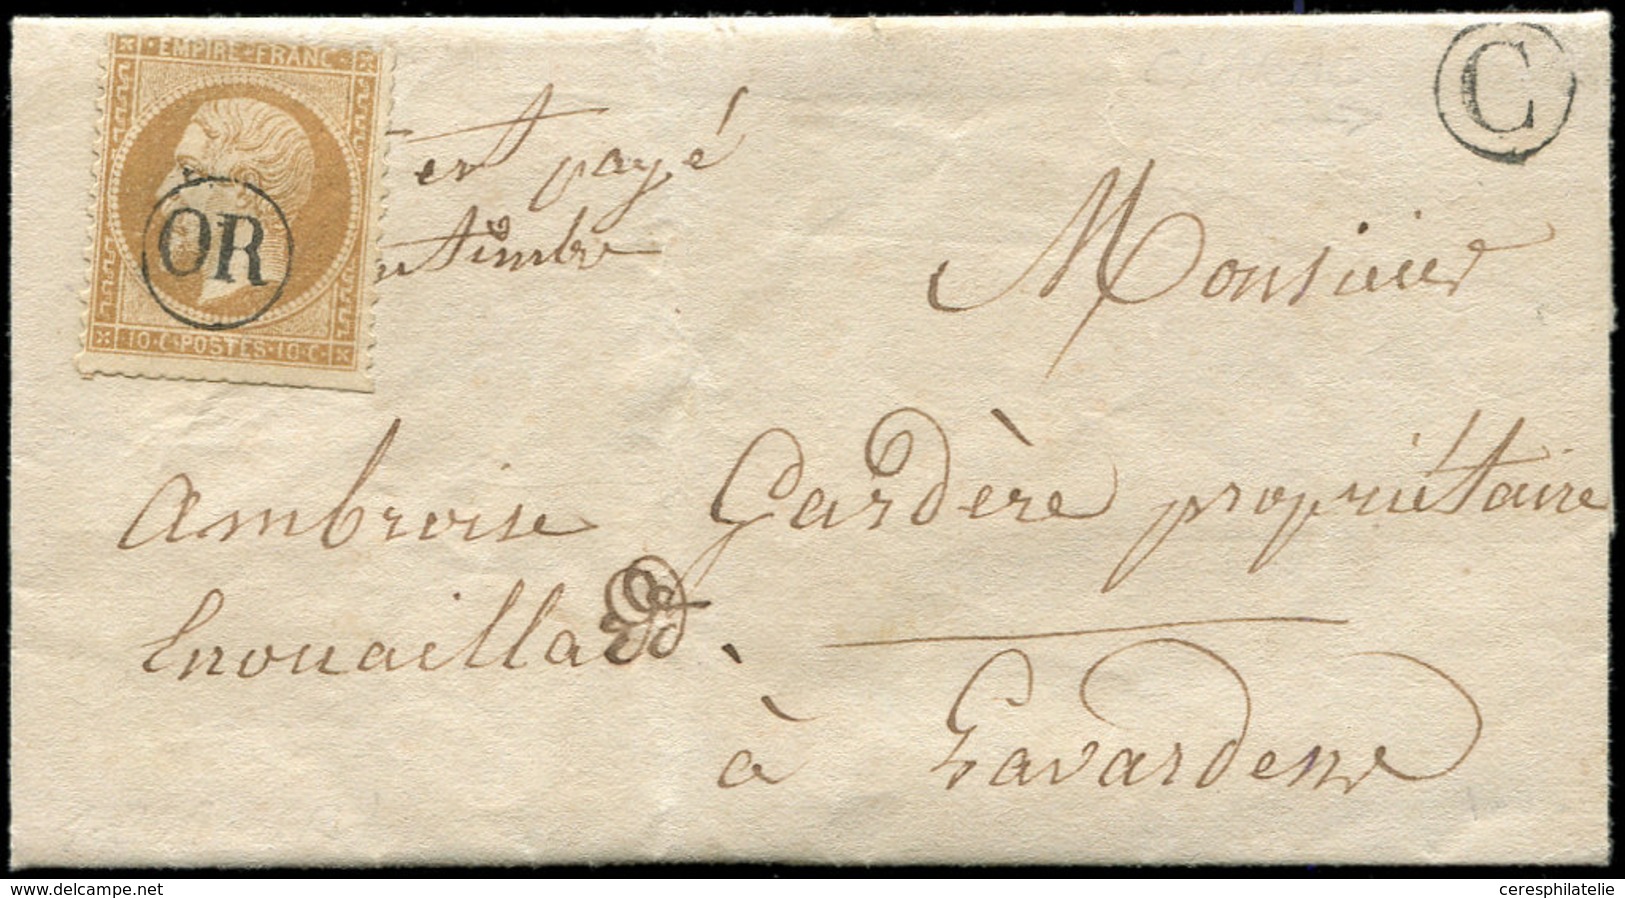 EMPIRE·FRANC·
OR
10·C·POSTES·10·C·
C
est payé
timbre
Monsieur
Ambroise Gardère propriétaire
Enouailla
à Lavardens
www.delcampe.net
ceresphilatelie